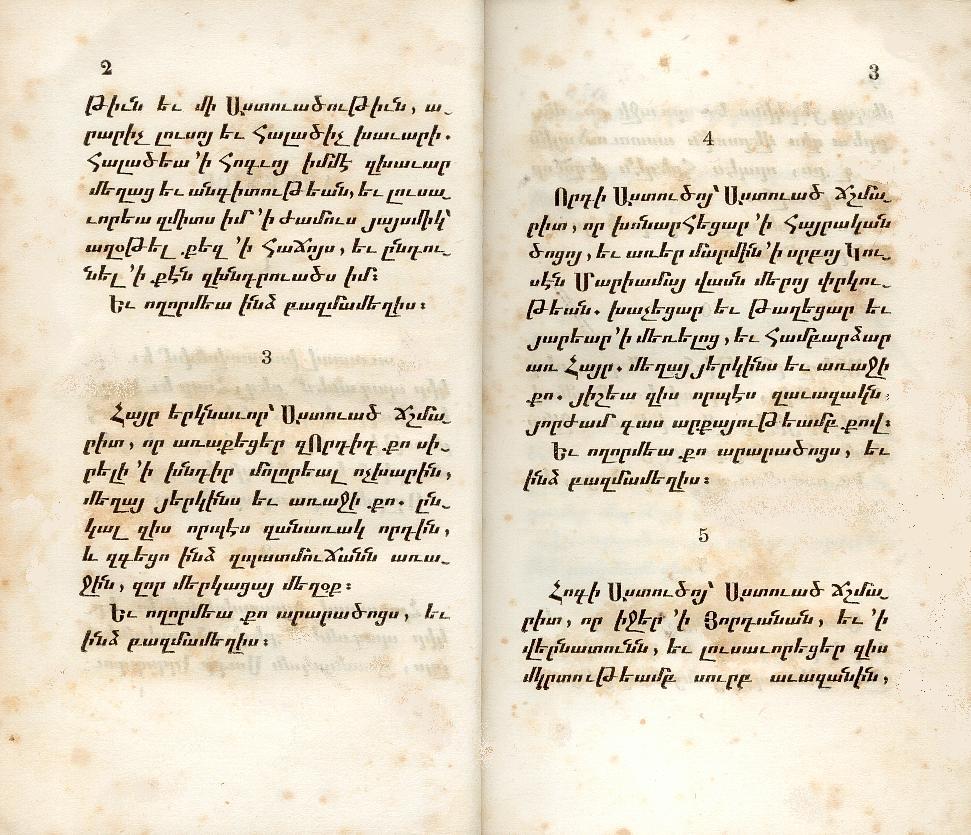 2
թիւն եւ մի Աստուածութիւն, ա֊
րարիչ լուսոյ եւ հալածիչ խաւարի.
հալածեա՛ ՚ի հոգւոյ իմմէ զխաւար
մեղաց եւ անգիտութեան, եւ լուսա֊
ւորեա զմիտս իմ ՚ի ժամուս յայսմիկ՝
աղօթել քեզ ՚ի հաճոյս, եւ ընդու֊
նել ՚ի քէն զխնդրուածս իմ։
Եւ ողորմեա ինձ բազմամեղիս։
3
Հայր երկնաւոր՝ Աստուած ճշմա֊
րիտ, որ առաքեցեր զՈրդիդ քո սի֊
րելի ՚ի խնդիր մոլորեալ ոչխարին,
մեղայ յերկինս եւ առաջի քո. ըն֊
կալ զիս որպէս զանառակ որդին,
և զգեցո ինձ զպատմուճանն առա֊
ջին, զոր մերկացայ մեղօք։
Եւ ողորմեա քո արարածոցս, եւ
ինձ բազմամեղիս։
3
4
Որդի Աստուծոյ՝ Աստուած ճշմա֊
րիտ, որ խոնարհեցար ՚ի հայրական
ծոցոյ, եւ առեր մարմին ՚ի սրբոյ կու֊
սէն Մարիամայ վասն մերոյ փրկու֊
թեան. խաչեցար եւ թաղեցար եւ
յարեար ՚ի մեռելոց, եւ համբարձար
առ Հայր. մեղայ յերկինս եւ առաջի
քո. յիշեա զիս որպէս զաւազակն,
յորժամ գաս արքայութեամբ քով։
Եւ ողորմեա քո արարածոցս, եւ
ինձ բազմամեղիս։
5
Հոգի Աստուծոյ՝ Աստուած ճշմա֊
րիտ, որ իջեր ՚ի Յորդանան, եւ ՚ի
վերնատունն, եւ լուսաւորեցեր զիս
մկրտութեամբ սուրբ աւազանին,